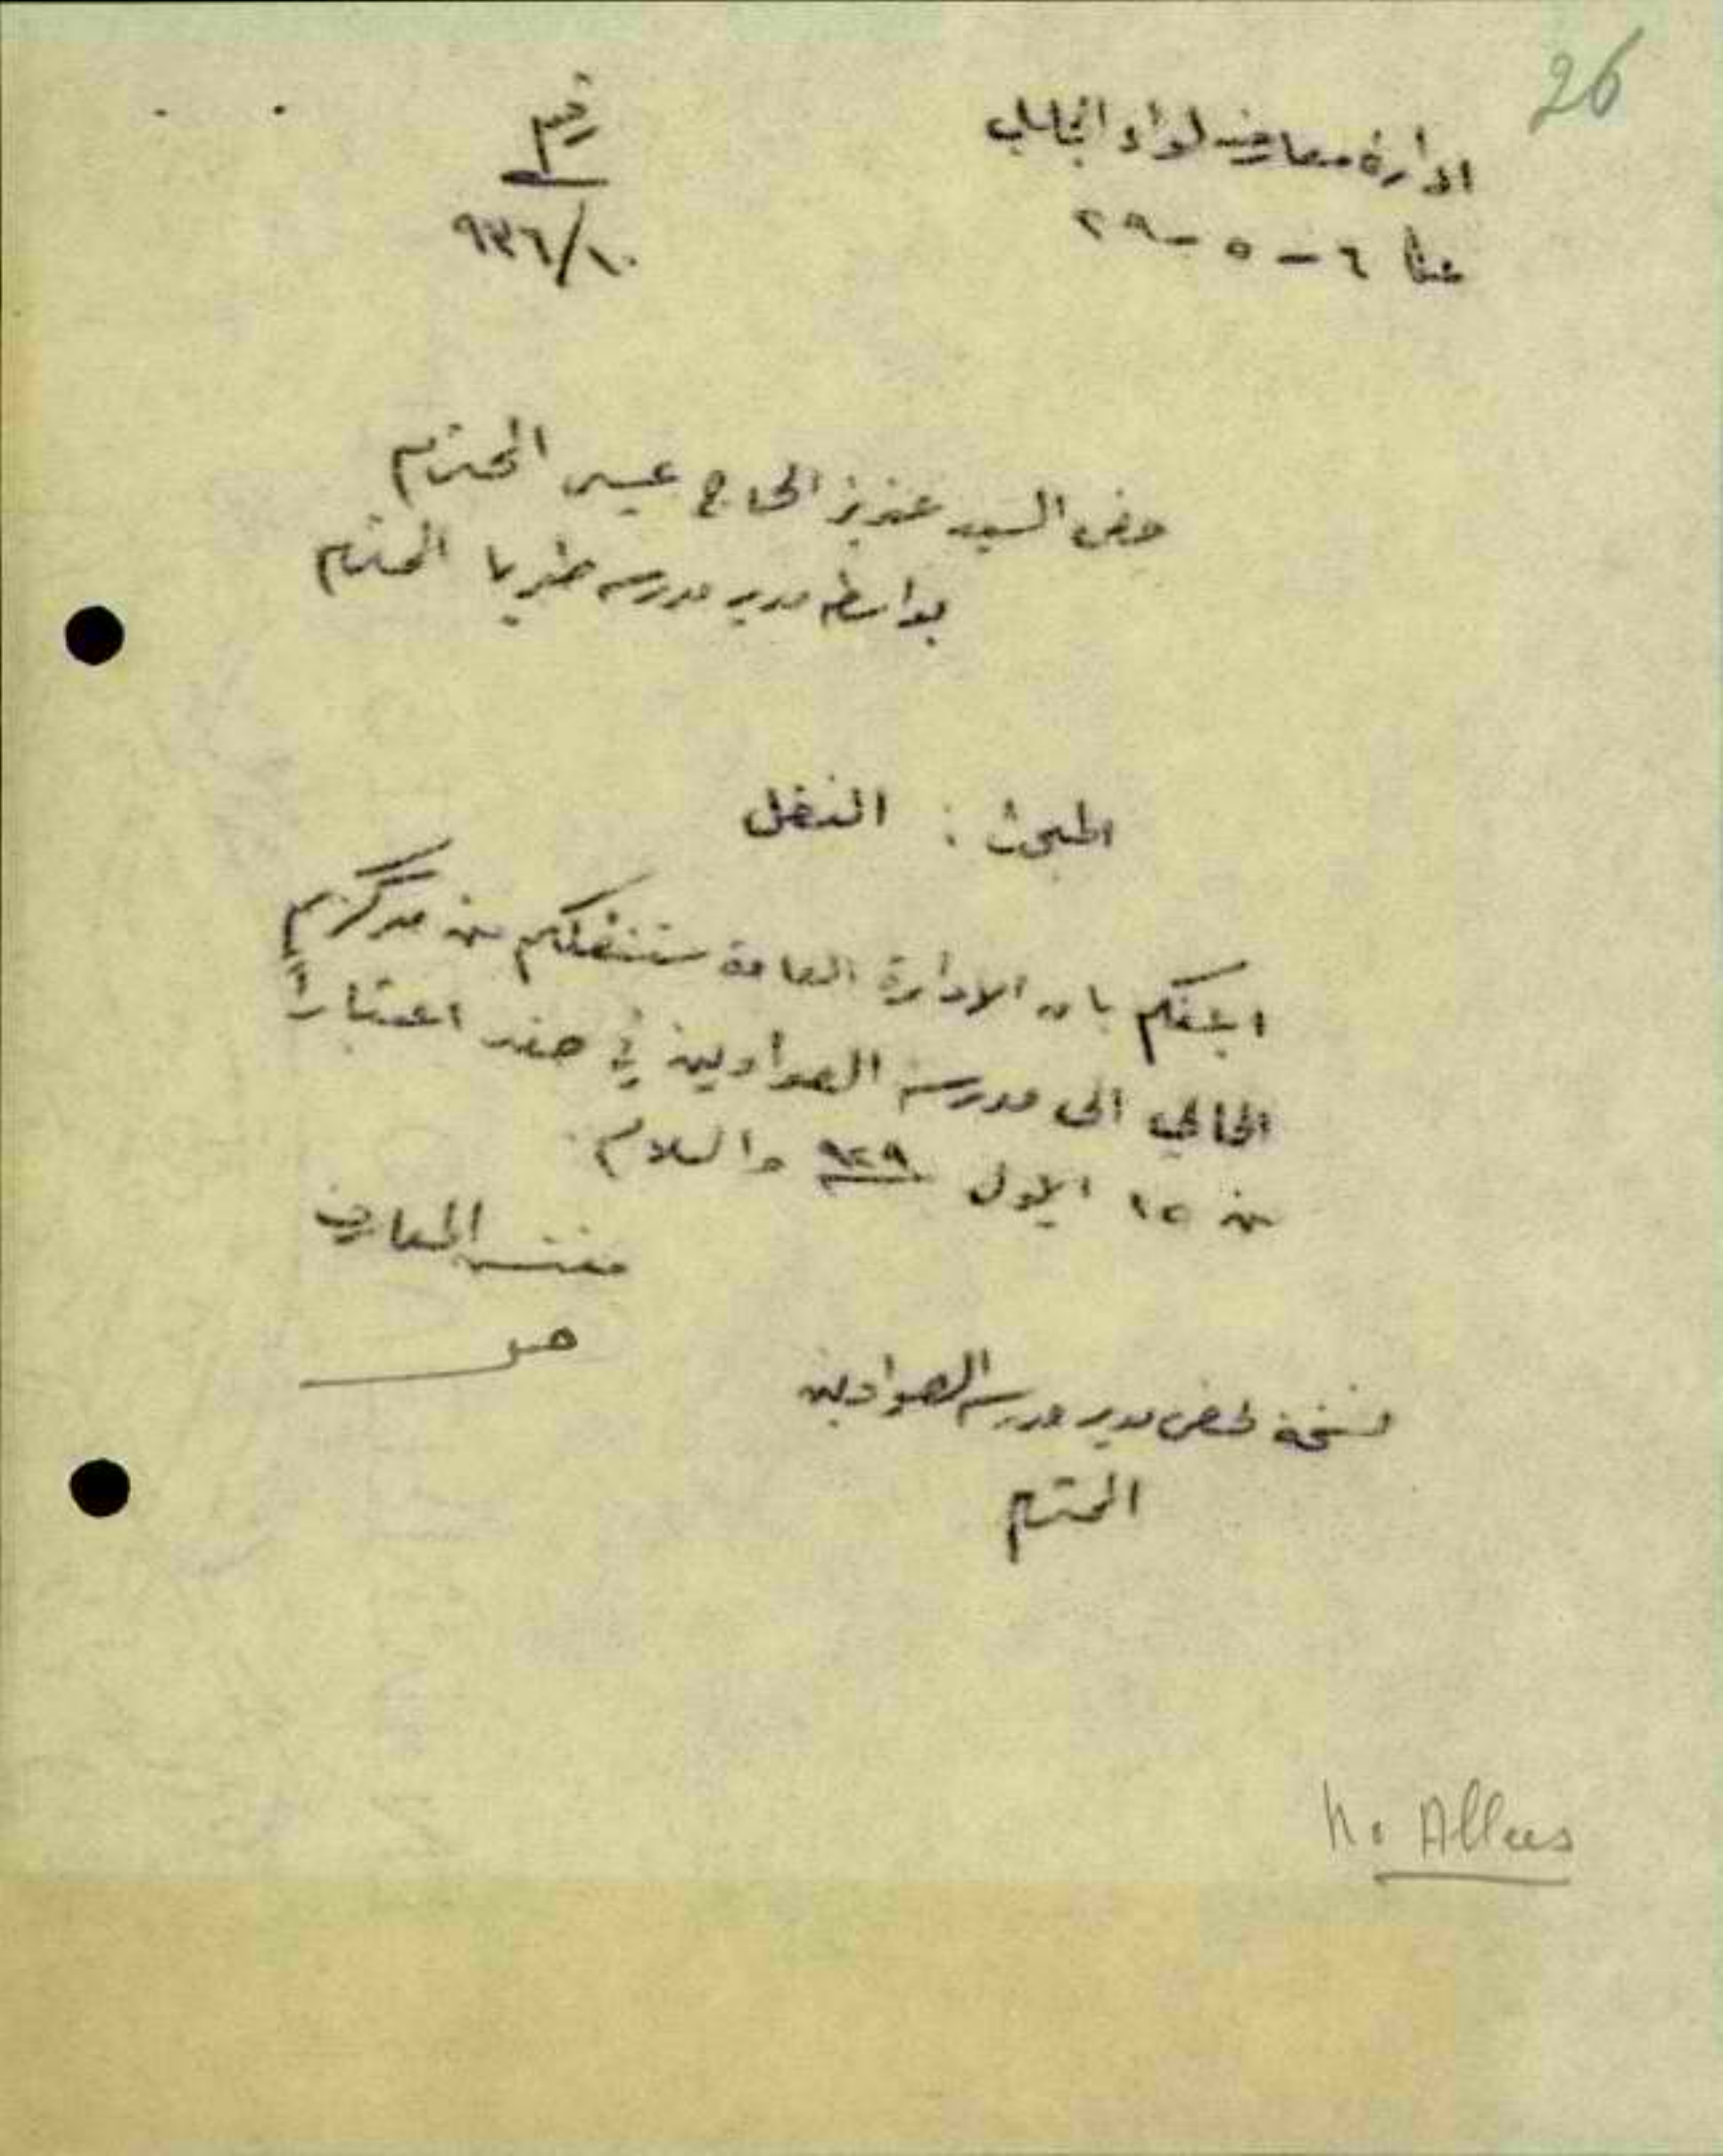 26
ادارة معارف لواء الجليل
عكا ٦ - ٥ - ٢٩
رقم
٩٣٦/١٠
حضرة السيد عزيز الحاج عيسى المحترم
بواسطة مدير مدرسة طبريا المحترم
المبحث : النقل
ابلغكم بان الادارة العامة ستنقلكم من مركزكم
الحالي الى مدرسة الصواوين في صفد اعتباراً
من ١٥ ايلول ٩٢٩ والسلام
مفتش المعارف
نسخة لحضرة مدير مدرسة الصواوين
المحترم